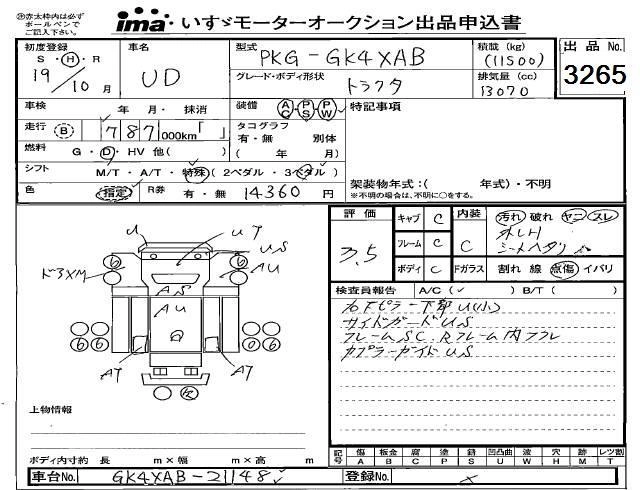 ㊟赤太枠内は必ず
ボールペンで
ご記入下さい。
ima いすゞモーターオークション出品申込書
初度登録
S・H・R
19年10月
車名
UD
型式
PKG-GK4XAB
グレード・ボディ形状
トラクタ
積載(kg)
(11500)
排気量(cc)
13070
出品No.
3265
車検 年 月・抹消
装備 AC P P PS W
特記事項
走行 B 787,000km「 」
タコグラフ
有・無 別体
( 年 月)
燃料 G・D・HV 他( )
シフト M/T・A/T・特殊(2ペダル・3ペダル)
色 指定 R券 有・無 14360円
架装物年式:( 年式)・不明
※不明の場合は、不明に○をする。
評価 3.5
キャブ C
フレーム C
ボディ C
内装 C
Fガラス
汚れ 破れ ヤニ スレ
シートヘタリ
割れ 線 点傷 イバリ
検査員報告 A/C(✓) B/T( )
右Fピラー下部U(小)
サイドガードUS
フレームSC.Rフレーム内フフレ
カプラーガイドUS
U
Uア
US
AU
ドアXM
AS
AU
AT
AT
6 6
6 6 6 6
上物情報
ボディ内寸約 長 m×幅 m×高 m
記号 傷 板金 腐 塗 錆 凹凸曲 波 穴 跡 レツ割
A B C P S U W H M T
車台No. GK4XAB-21148
登録No.